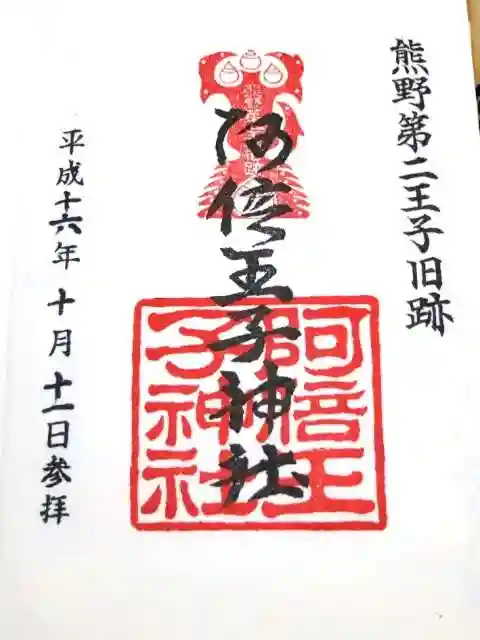 熊野第二王子旧跡
阿倍王子神社
阿倍王
子神社
平成十六年 十月 十一日参拝